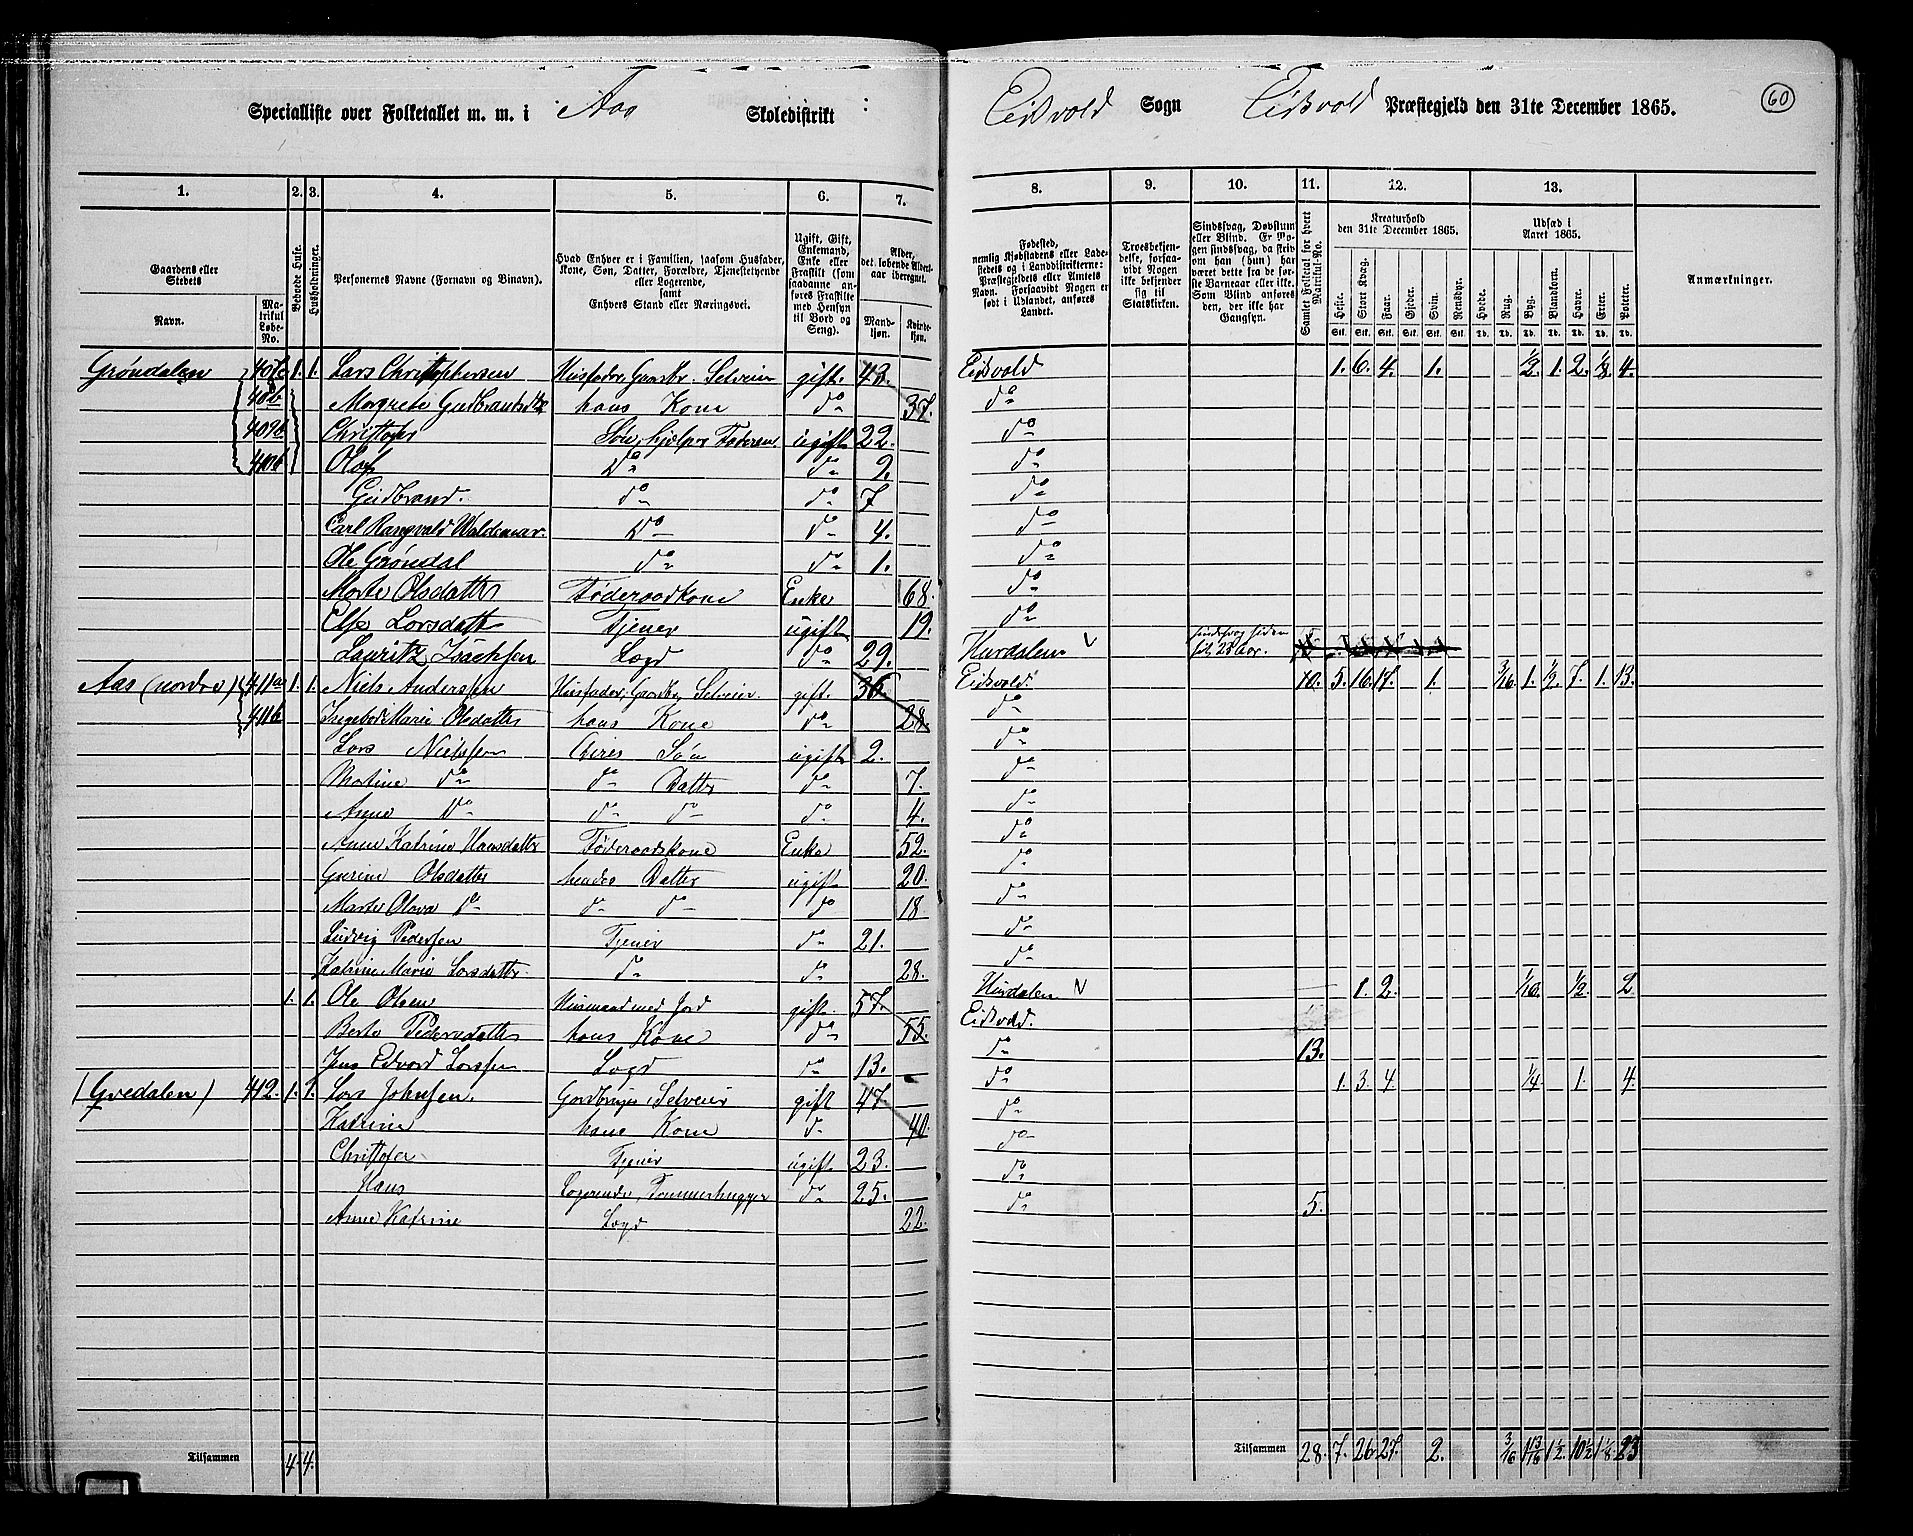 Specialliste over Folketallet m. m. i Aas Skoledistrikt Eidsvold Sogn Eidsvold Præstegjeld den 31te December 1865. 60
1. 2. 3. 4. 5. 6. 7. 8. 9. 10. 11. 12. 13.
Gaardens eller Stedets Navn. Matrikul Løbe-No. Beboede Huse. Husholdninger. Personernes Navne (Fornavn og Binavn). Hvad Enhver er i Familien, saasom Husfader, Kone, Søn, Datter, Forældre, Tjenestetyende eller Logerende, samt Enhvers Stand eller Næringsvei. Ugift, Gift, Enkemand, Enke eller Fraskilt (saadanne anføres Fraskilte med Hensyn til Bord og Seng). Alder, det løbende Alders-aar iberegnet. Mandkjøn. Kvindekjøn.
Fødested, nemlig Kjøbstadens eller Ladestedets og i Landdistrikterne: Præstegjeldets eller Amtets Navn. Forsaavidt Nogen er født i Udlandet, anføres Landet. Troesbekjendelse, forsaavidt Nogen ikke bekjender sig til Statskirken. Sindssvag, Døvstum eller Blind. Er Nogen sindssvag, da skrives om han (hun) har været dette fra de første Barneaar eller ikke. Som Blind anføres den, der ikke har Gangsyn. Samlet Folketal for hvert Matrikul-No. Kreaturhold den 31te December 1865. Udsæd i Aaret 1865. Anmærkninger.
Heste. Stort Kvæg. Faar. Gjeder. Svin. Rensdyr. Hvede. Rug. Byg. Blandkorn. Havre. Erter. Poteter.
Stk. Stk. Stk. Stk. Stk. Stk. Td. Td. Td. Td. Td. Td. Td.
Grøndalen 407b 1. 1. Lars Christophersen Husfader, Gaardbr. Selveier gift. 43. Eidsvold 1. 6. 4. 1. 1/2. 1. 2. 1/8. 4.
408b Margrete Gudbrandsdtr hans Kone do 37. do
409b Christofer Søn, hjelper Faderen ugift 22. do
410b Olaf do do 9. do
Gudbrand. do do 7 do
Carl Rangvald Waldemar. do do 4. do
Ole Grøndal do do 1. do
Marte Olsdatter Føderaadkone Enke 68. do
Else Larsdatter Tjener ugift 19. do
Lauritz Isachsen Logd do 29. Hurdalen sindsvag siden sit 28 Aar.
Aas (nordre) 411a 1. 1. Niels Andersen Husfader, Gaardbr. Selveier. gift. 36. Eidsvold. 10. 5. 16. 17. 1. 3/16. 1. 1/2. 7. 1. 13.
411b Ingebor Marie Olsdatter hans Kone do 28. do
Lars Nielssen deres Søn ugift 2. do
Martine do do Datter do 7. do
Anne do do do do 4. do
Anne Katrine Hansdatter Føderaadskone Enke 52. do
Gurine Olsdatter hendes Datter ugift 20. do
Marte Olava do do do do 18. do
Ludvig Pedersen Tjener do 21. do
Katrine Marie Larsdatter. do do 28. do
1. 1. Ole Olsen Husmand med Jord gift. 57. Hurdalen 1. 2. 1/10. 1/2. 2
Berte Pedersdatter hans Kone do 55. Eidsvold.
Jens Edvard Larssen Logd do 13. do 13.
(Gredalen) 412. 1. 1. Lars Johnsen. Gardbruger, Selveier gift 47. do 1. 3. 4. 1/4. 1. 4.
Katrine hans Kone do 40 do
Christofer Tjener ugift 23. do
Hans Logerende, Tømmerhugger do 25. do
Anne Katrine Logd 22. do 5.
Tilsammen 4. 4. Tilsammen 28. 7. 26. 27. 2. 3/16 1 13/16 1 1/2. 10 1/2 1 1/8. 23